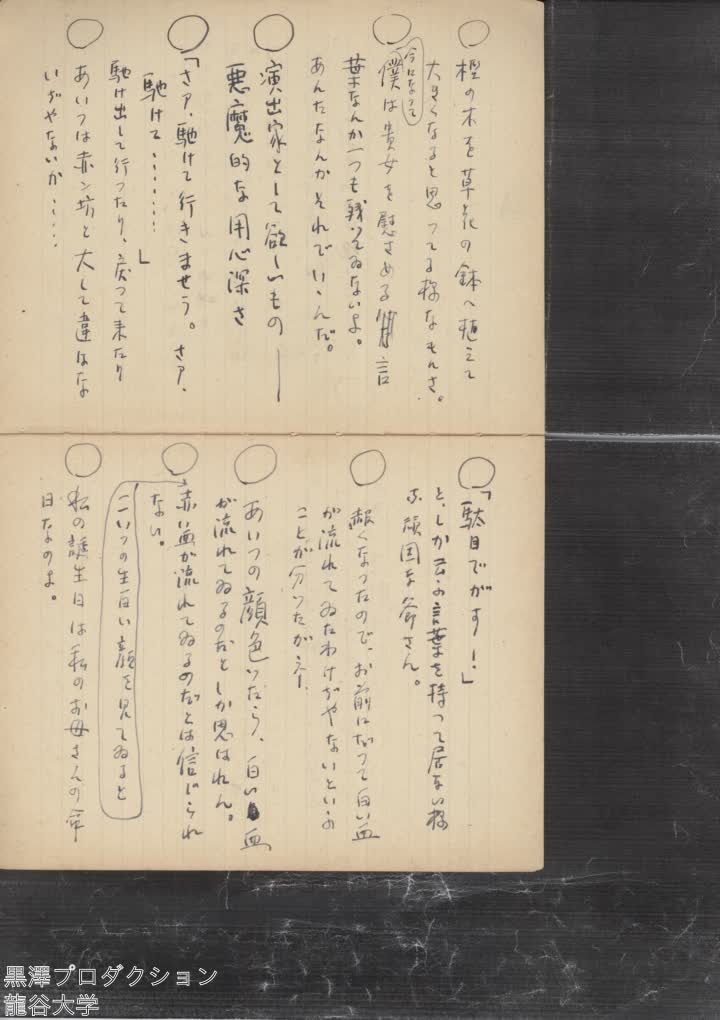 ○ 樫の木を草花の鉢へ植えて
大きくなると思ってる様なもんさ。
○ 今になって
僕は貴女を慰さめる言
葉なんか一つも残してゐないよ。
あんたなんかそれでいゝんだ。
○ 演出家として欲しいもの――
悪魔的な用心深さ
○ 「さァ、馳けて行きませう。さァ、
馳けて………」
馳け出して行つたり、戻つて来たり
○ あいつは赤ン坊と大して違はな
いぢやないか……
○ 「駄目でがす！」
と、しか云ふ言葉を持つて居ない様
な頑固な爺さん。
○ 赧くなつたので、お前にだつて白い血
が流れてゐたわけぢやないといふ
ことが分つたがネー
○ あいつの顔色つたら、白い血
が流れてゐるのだとしか思はれん。
○ 赤い血が流れてゐるのだとは信じられ
ない。
こいつの生白い顔を見てゐると
○ 私の誕生日は私のお母さんの命
日なのよ。
黒澤プロダクション
龍谷大学